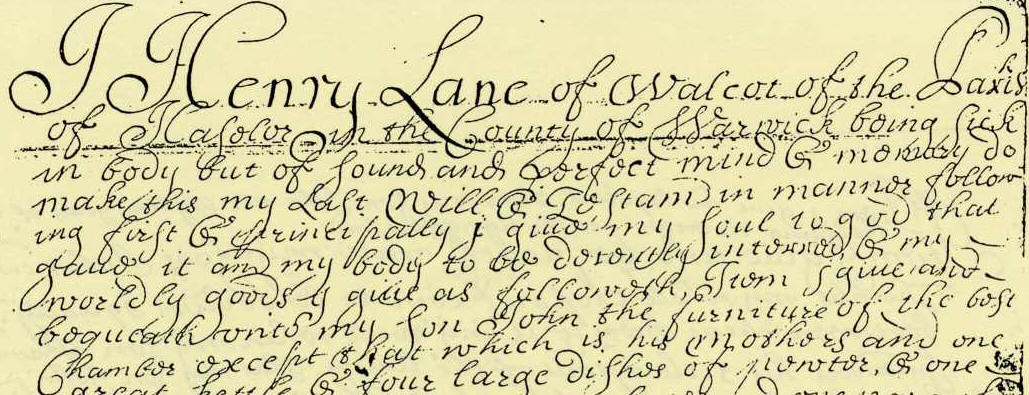 I Henry Lane of Walcot of the Parish
of Haselor in the County of Warwick being sick
in body but of sound and perfect mind & memory do
make this my Last Will & Testamt in manner follow
ing first & principally I give my soul to god that
gave it and my body to be decently interred & my
worldly goods I give as followeth, Item I give and
bequeath unto my son John the furniture of the best
Chamber except that which is his mothers and one
great kettle & four large dishes of pewter, & one